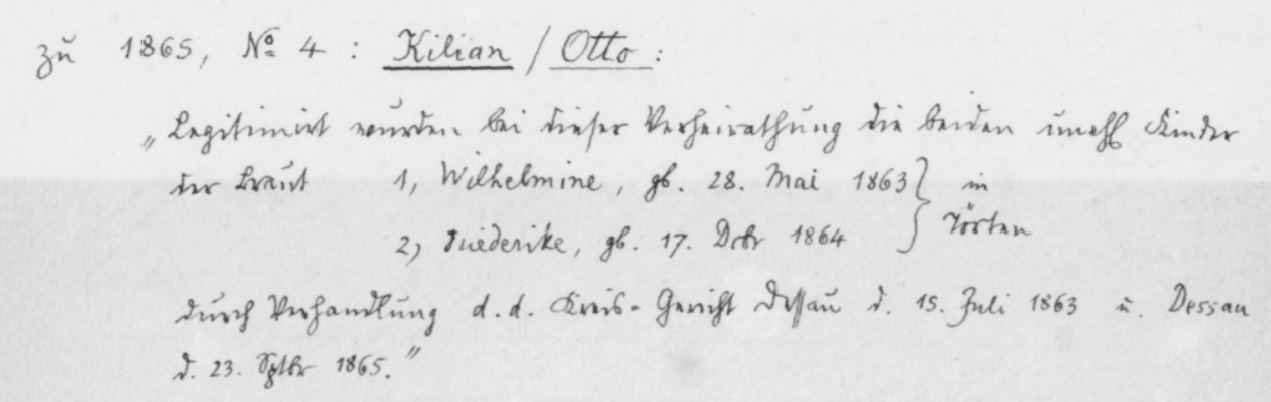 zu 1865, No 4 : Kilian / Otto :
„Legitimirt wurden bei dieser Verheirathung die beiden unehl Kinder
der Braut 1, Wilhelmine, gb. 28. Mai 1863 } in
2, Friederike, gb. 17. Dcbr 1864 } Törten
durch Verhandlung d. d. Kreis-Gericht Dessau d. 15. Juli 1863 u. Dessau
d. 23. Sptbr 1865."